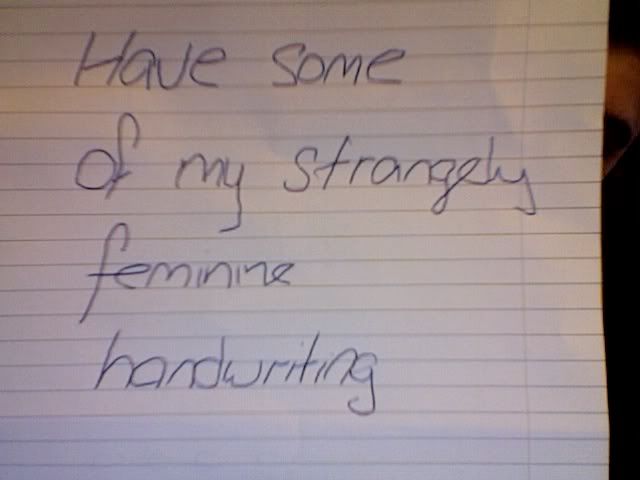 Have some
of my strangely
feminine
handwriting